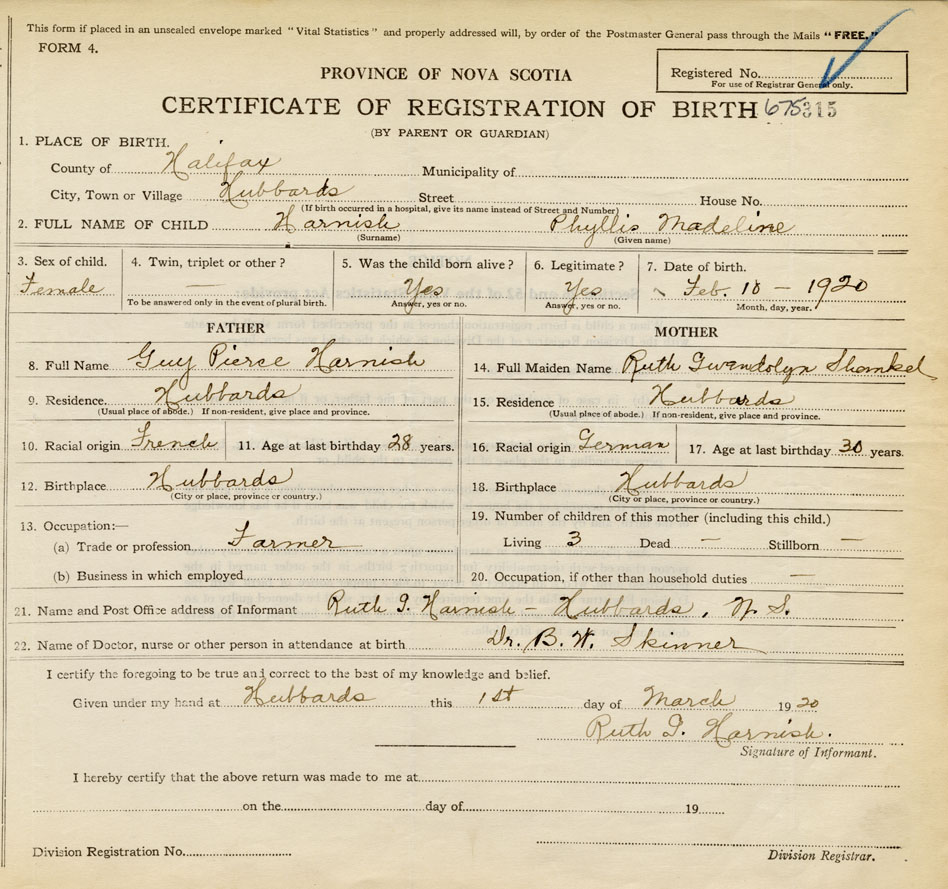 This form if placed in an unsealed envelope marked "Vital Statistics" and properly addressed will, by order of the Postmaster General pass through the Mails "FREE."
FORM 4.
Registered No.
For use of Registrar General only.
PROVINCE OF NOVA SCOTIA
CERTIFICATE OF REGISTRATION OF BIRTH 675315
(BY PARENT OR GUARDIAN)
1. PLACE OF BIRTH.
County of Halifax Municipality of
City, Town or Village Hubbards Street House No.
(If birth occurred in a hospital, give its name instead of Street and Number)
2. FULL NAME OF CHILD Harnish Phyllis Madeline
(Surname) (Given name)
3. Sex of child. 4. Twin, triplet or other ? 5. Was the child born alive ? 6. Legitimate ? 7. Date of birth.
Female — Yes Yes Feb. 18 - 1920
To be answered only in the event of plural birth. Answer, yes or no. Answer, yes or no. Month, day, year.
FATHER
8. Full Name Guy Pierce Harnish
9. Residence Hubbards
(Usual place of abode.) If non-resident, give place and province.
10. Racial origin French 11. Age at last birthday 28 years.
12. Birthplace Hubbards
(City or place, province or country.)
13. Occupation:—
(a) Trade or profession Farmer
(b) Business in which employed
MOTHER
14. Full Maiden Name Ruth Gwendolyn Shankel
15. Residence Hubbards
(Usual place of abode.) If non-resident, give place and province.
16. Racial origin German 17. Age at last birthday 30 years.
18. Birthplace Hubbards
(City or place, province or country.)
19. Number of children of this mother (including this child.)
Living 3 Dead — Stillborn —
20. Occupation, if other than household duties —
21. Name and Post Office address of Informant Ruth G. Harnish - Hubbards, N. S.
22. Name of Doctor, nurse or other person in attendance at birth Dr. B. W. Skinner
I certify the foregoing to be true and correct to the best of my knowledge and belief.
Given under my hand at Hubbards this 1st day of March 1920
Ruth G. Harnish.
Signature of Informant.
I hereby certify that the above return was made to me at
on the day of 19
Division Registration No.
Division Registrar.